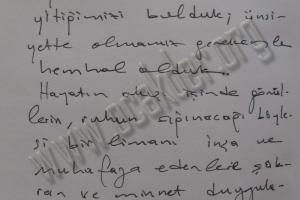 yitiğimizi bulduk; ünsi-
yette olmamız
hemhal olduk.
Hayatın akışı içinde gönül-
lerin, ruhun sığınacağı böyle-
si bir limanı inşa ve
muhafaza edenlere şük-
ran ve minnet duygula-